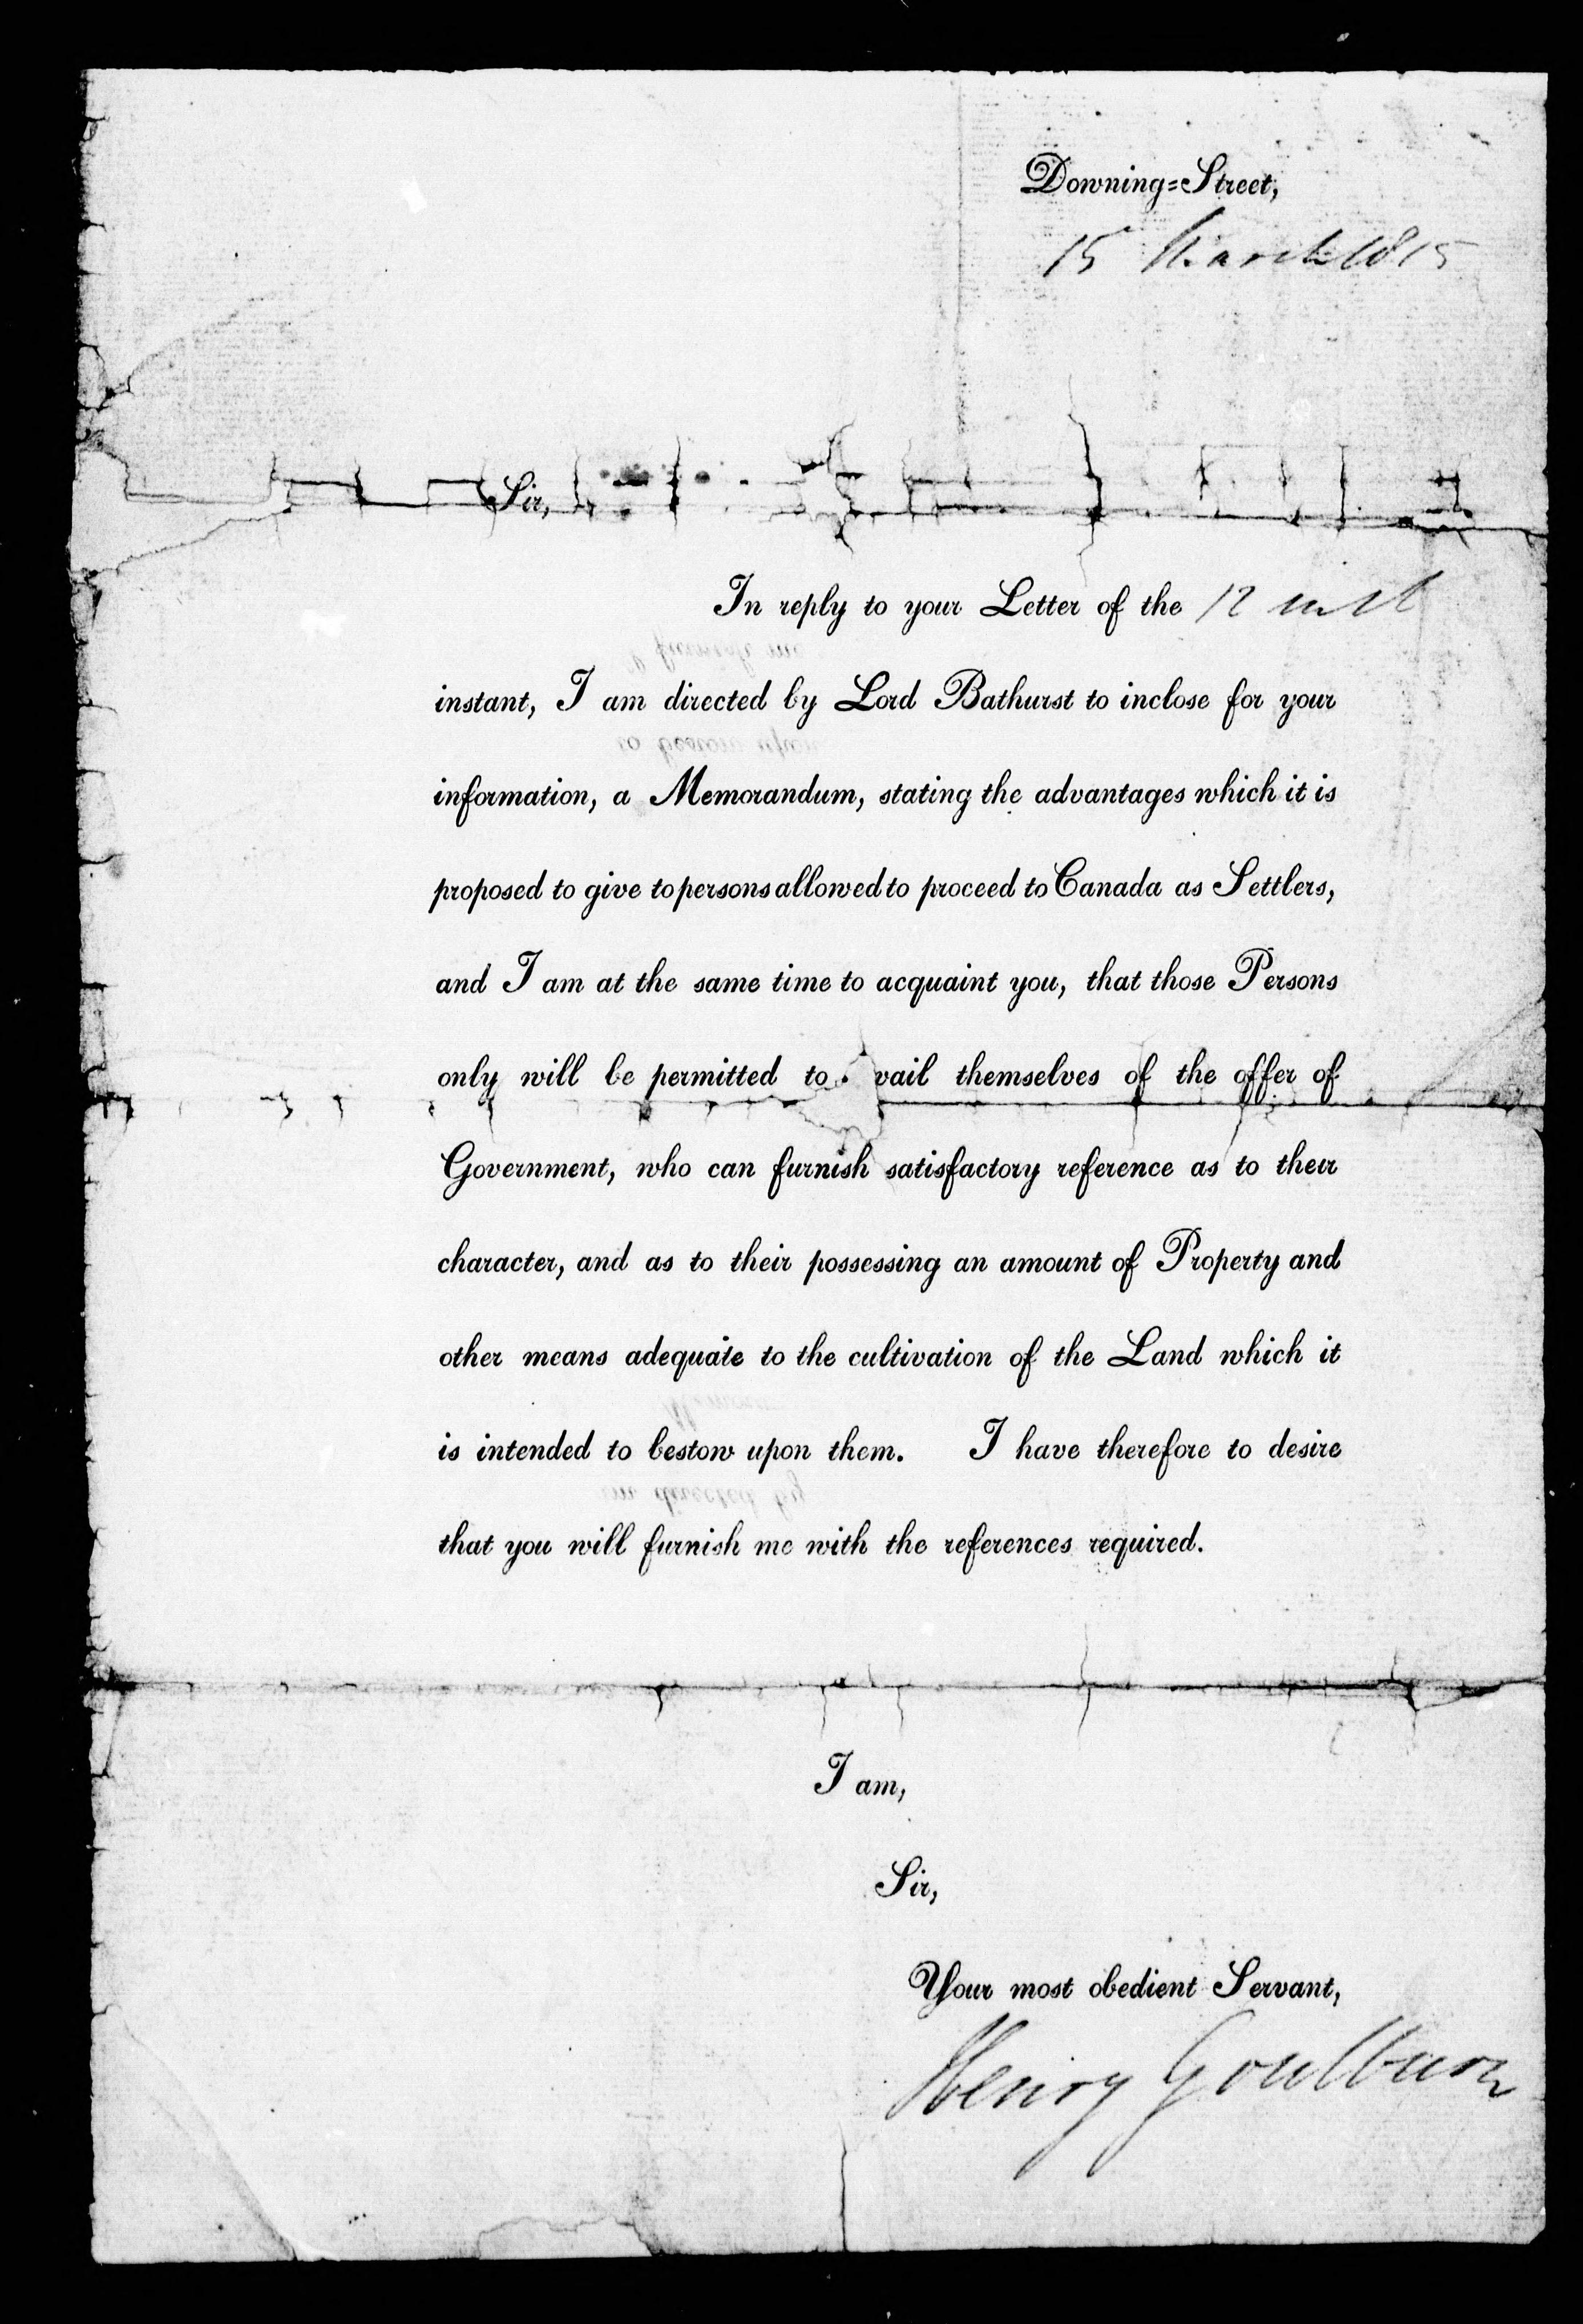 Downing=Street,
15 March 1815
Sir,
In reply to your Letter of the 12 inst
instant, I am directed by Lord Bathurst to inclose for your
information, a Memorandum, stating the advantages which it is
proposed to give to persons allowed to proceed to Canada as Settlers,
and I am at the same time to acquaint you, that those Persons
only will be permitted to vail themselves of the offer of
Government, who can furnish satisfactory reference as to their
character, and as to their possessing an amount of Property and
other means adequate to the cultivation of the Land which it
is intended to bestow upon them. I have therefore to desire
that you will furnish me with the references required.
I am,
Sir,
Your most obedient Servant,
Henry Goulburn